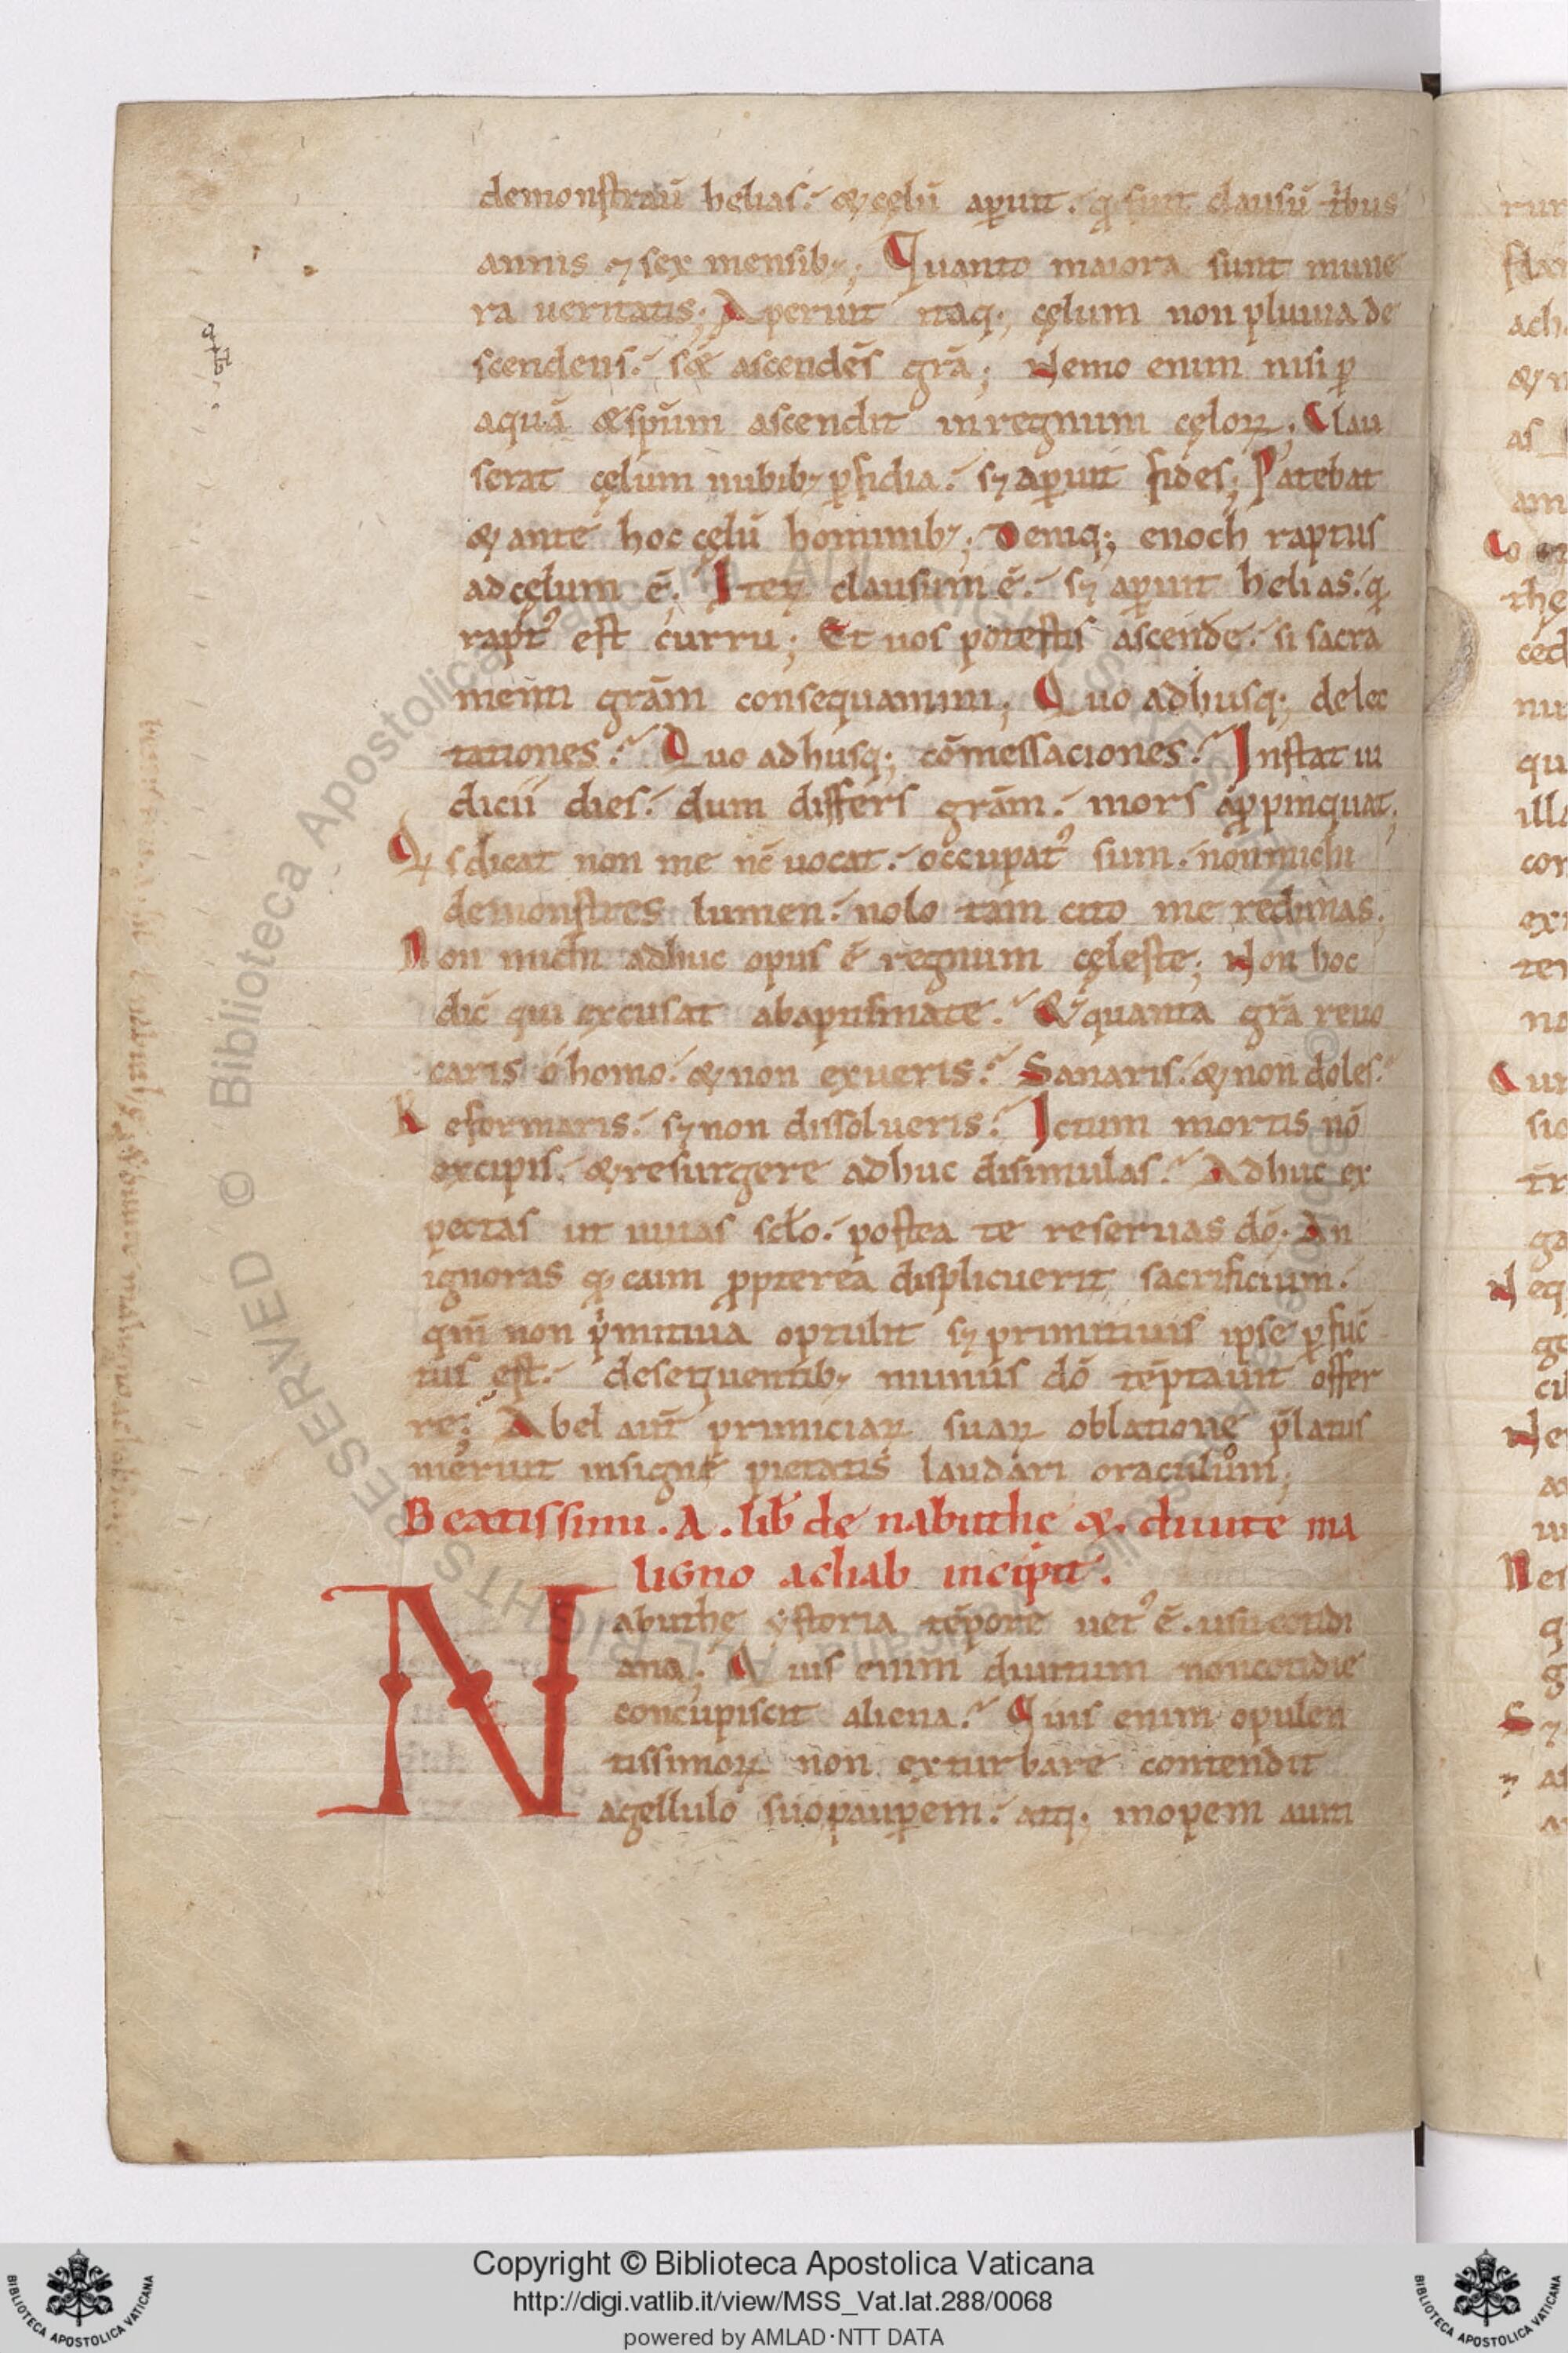 demonstraū helias. &cęlū aꝑuit. q̇ fuit clausū tⁱbus
annis ⁊ sex mensib;; Quanto maiora sunt mune
ra ueritatis; Aperuit itaq; cęlum non pluuia de
scendens. s& ascendēs grā; Nemo enim nisi ꝑ
aquā &sp̄um ascendit inregnum cęloꝝ; Clau
serat cęlum nubib; ꝑfidia. sꝫ aꝑuit fides; Patebat
& ante hoc cęlū hominib;; Deniq; enoch raptus
adcęlum ē; Iteꝝ clausum ē. sꝫ aꝑuit helias. q̇
rapt⁹ est curru; Et uos potestis ascende. si sacra
menti grām consequamini; Quo adhusq; delec
tationes? Quo adhusq; cōmessaciones? Instat iu
dicii dies. dum differs grām. mors aꝓpinquat;
Q̇sdicat non me nc̄ uocat. occupat⁹ sum. nonmichi
demonstres lumen. nolo tam cito me redimas.
Non michi adhuc opus ē regnum cęleste; Non hoc
dic̄ qui excusat abaptismate? & quanta grā reuo
caris o homo. & non exueris? Sanaris. & non doles?
Reformaris. sꝫ non dissolueris? Ictum mortis nō
excipis. & resurgere adhuc disimulas? Adhuc ex
pectas ut uiuas sclo. postea te reseruas dō; An
ignoras qꝫ caim ꝓpterea displicuerit sacrificium.
qm̄ non pⁱmitiua optulit sꝫ primitiuis ipse ꝑfuc
tus est. desequentib; munus dō tēptauit offer
re; Abel aut̄ primiciaꝝ suaꝝ oblatione p̄latus
meruit insigne pietatis laudari oraculōm;
Beatissimi. A. lib̄ de nabuthe &. diuite ma
ligno achab incipit.
Nabuthe ystoria tēpore uet⁹ ē. usu cotidi
ana; Quis enim diuitum noncotidie
concupiscit aliena? Quis enim opulen
tissimoꝝ non exturbare contendit
agellulo suo pauꝑem. atq; inopem auiti
Copyright © Biblioteca Apostolica Vaticana
http://digi.vatlib.it/view/MSS_Vat.lat.288/0068
powered by AMLAD·NTT DATA
BIBLIOTECA APOSTOLICA VATICANA
BIBLIOTECA APOSTOLICA VATICANA